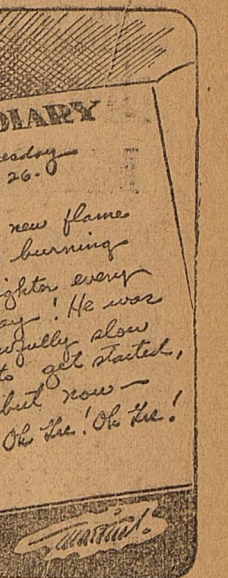 DIARY
esday
26.
new flame
burning
ighter every
ay! He was
wfully slow
to get started,
but now —
Oh Gee! Oh Gee!